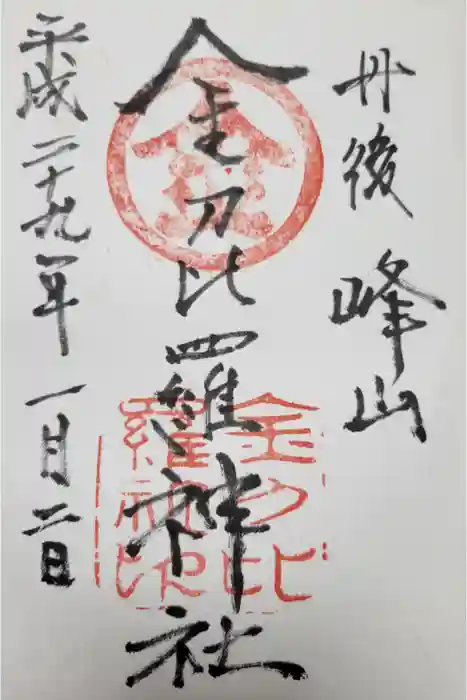 丹後 峰山
金刀比羅神社
平成二十九年一月二日
金刀比
羅神社
印